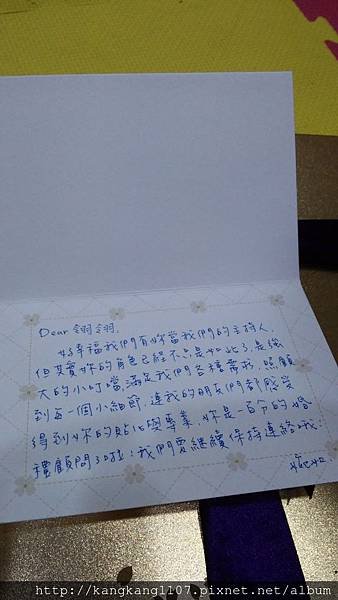 Dear 翊翊,
好幸福我們有妳當我們的主持人,
但其實妳的角色已經不只是如此了,是絕
大的小叮噹滿足我們各種需求,照顧
到每一個小細節,連我的朋友們都感受
得到妳的貼心與專業,妳是一百分的婚
禮顧問了啦!我們要繼續保持連絡哦
http://kangkang1107.pixnet.net/album